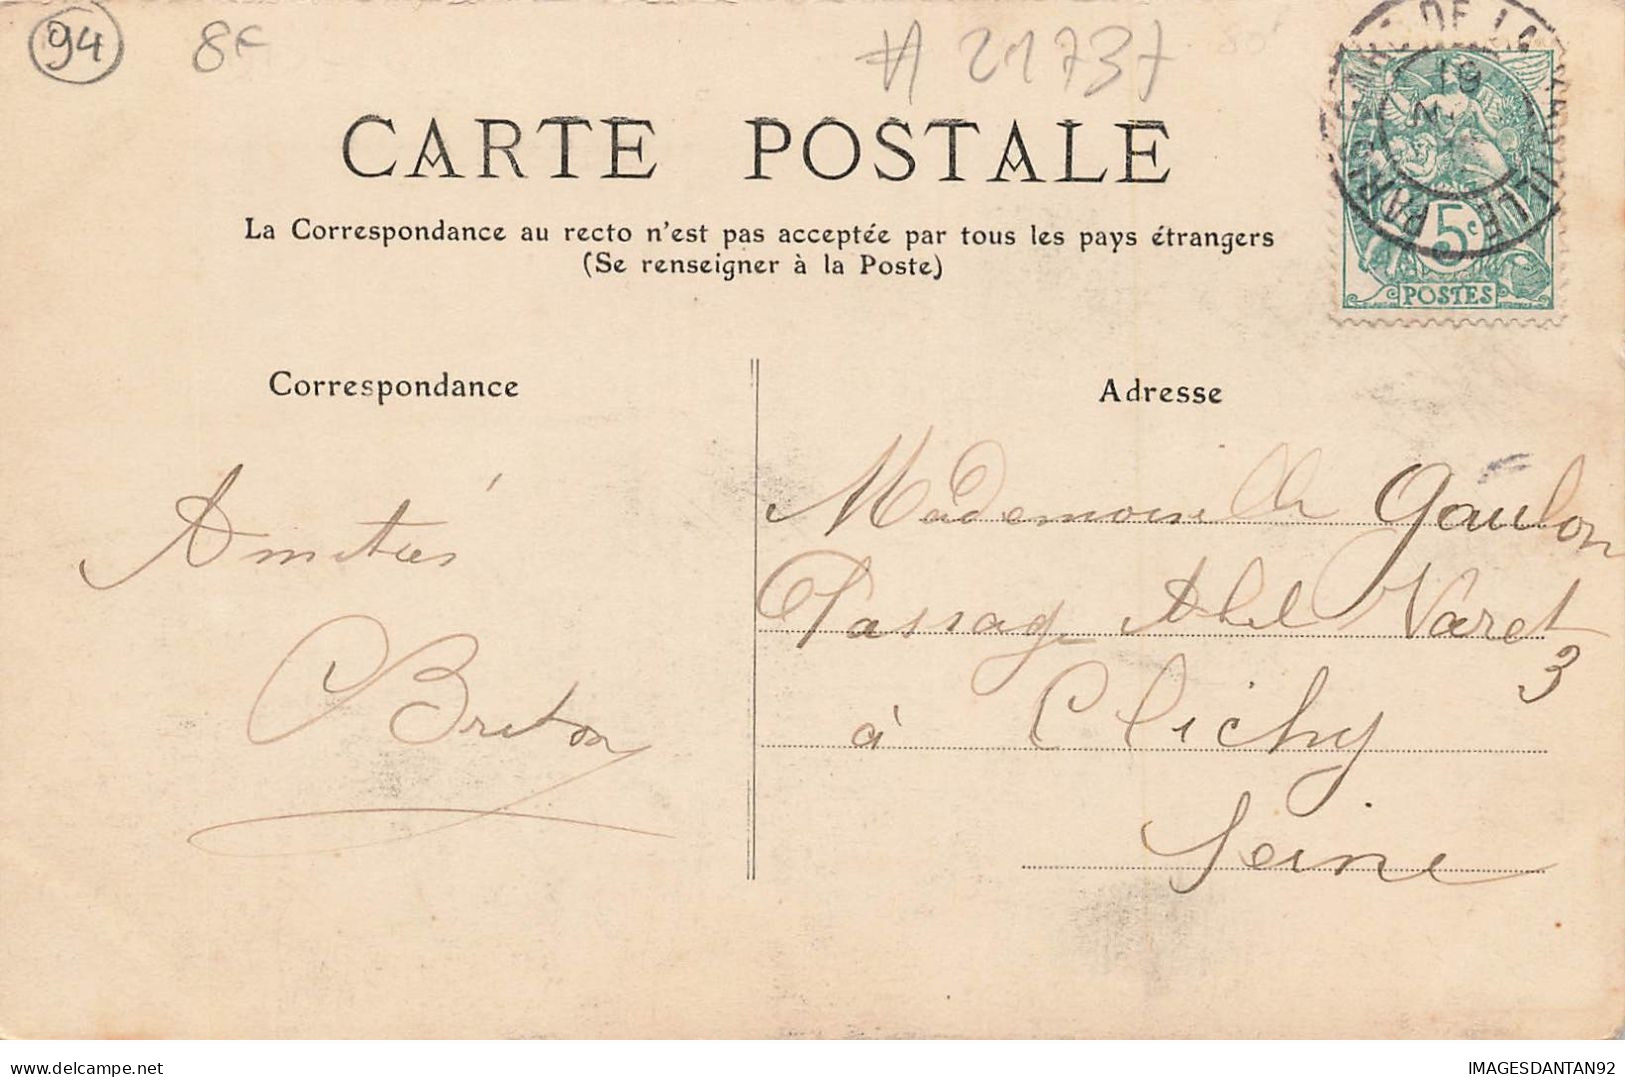 94
8F
# 21737
CARTE POSTALE
La Correspondance au recto n'est pas acceptée par tous les pays étrangers
(Se renseigner à la Poste)
5c
POSTES
Correspondance
Adresse
Amitiés
Breton
Mademoiselle Gaulon
Passage Abel Varet
3
à Clichy
Seine
IMAGESDANTAN92